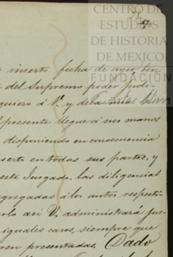 CENTRO DE
ESTUDIOS
DE HISTORIA
DE MEXICO
FUNDACIÓN
inserto fecha de
del Supremo poder judi-
quiero á V. y de la mia
presente llegue á sus manos
disponiendo en consecuencia
en todas sus partes, y
este Juzgado, las diligencias
agregadas á los autos respecti-
asi V. administrará jus-
iguales casos, siempre que
presentadas. Dado